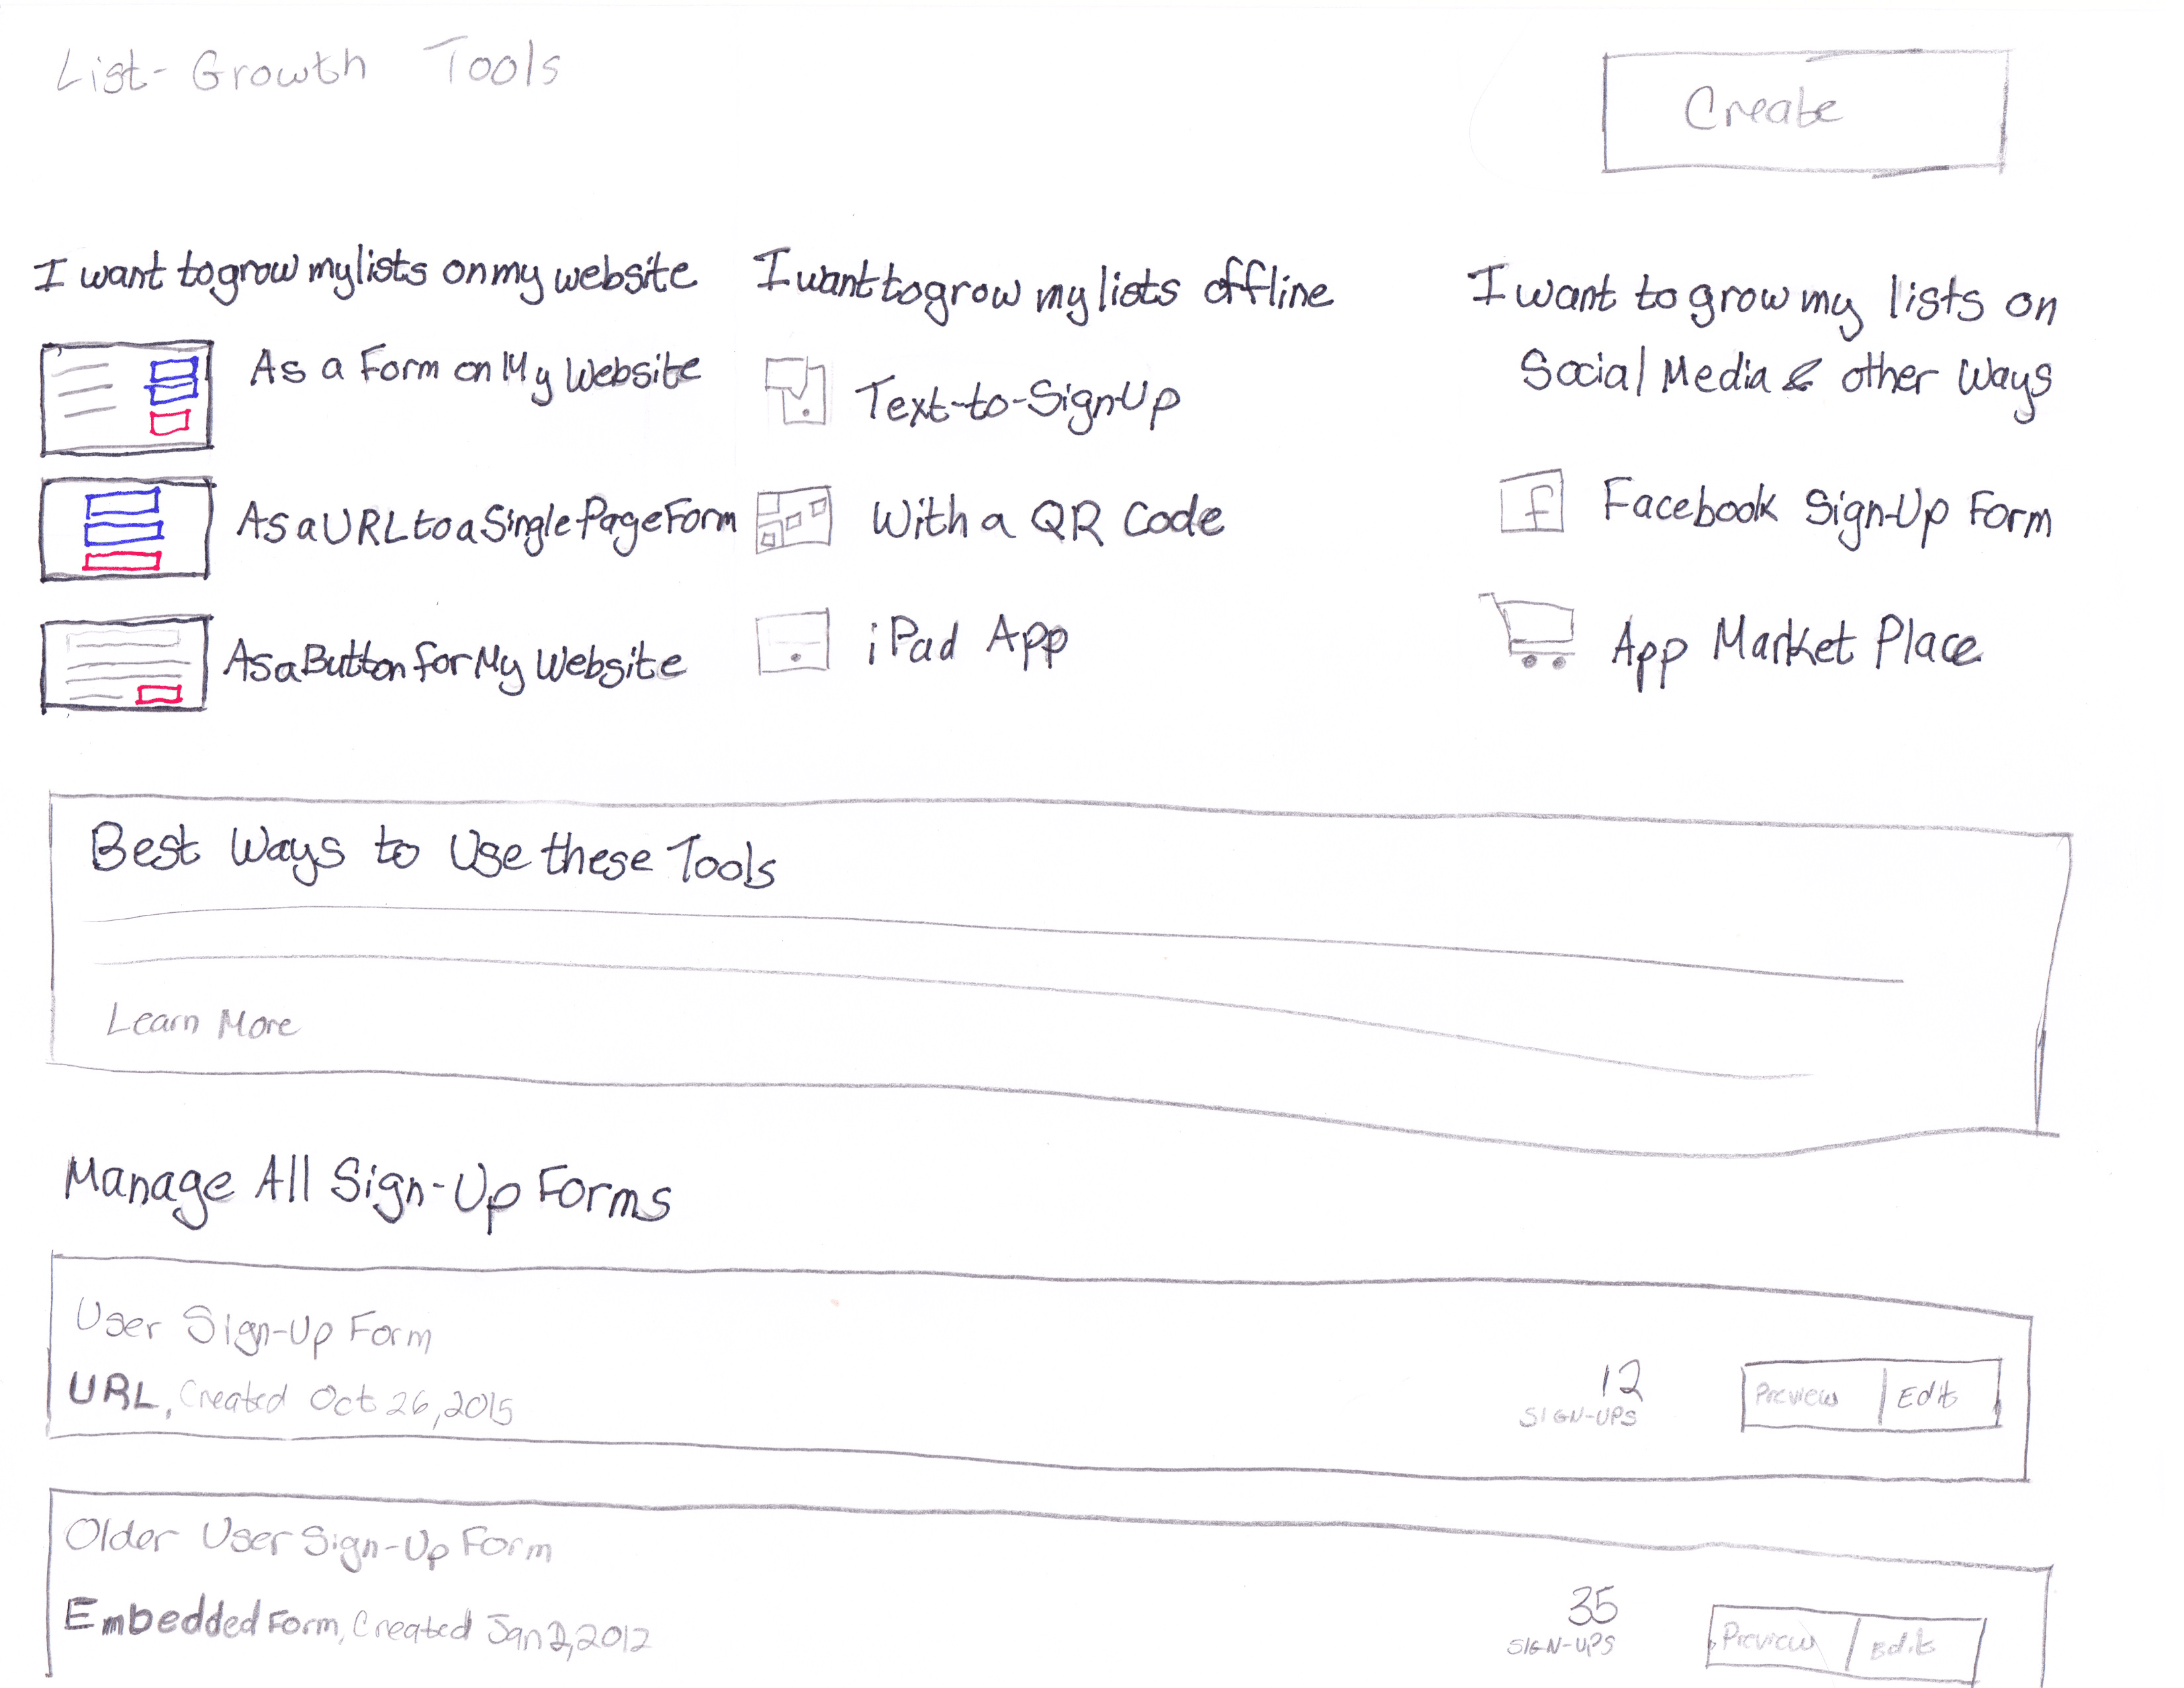 List-Growth Tools
Create
I want to grow my lists on my website
As a Form on My Website
As a URL to a Single Page Form
As a Button for My Website
I want to grow my lists offline
Text-to-Sign-Up
With a QR Code
iPad App
I want to grow my lists on
Social Media & other Ways
f
Facebook Sign-Up Form
App Market Place
Best Ways to Use these Tools
Learn More
Manage All Sign-Up Forms
User Sign-Up Form
URL, Created Oct 26, 2015
12
SIGN-UPS
Preview
Edit
Older User Sign-Up Form
Embedded Form, Created Jan 2, 2012
35
SIGN-UPS
Preview
Edit